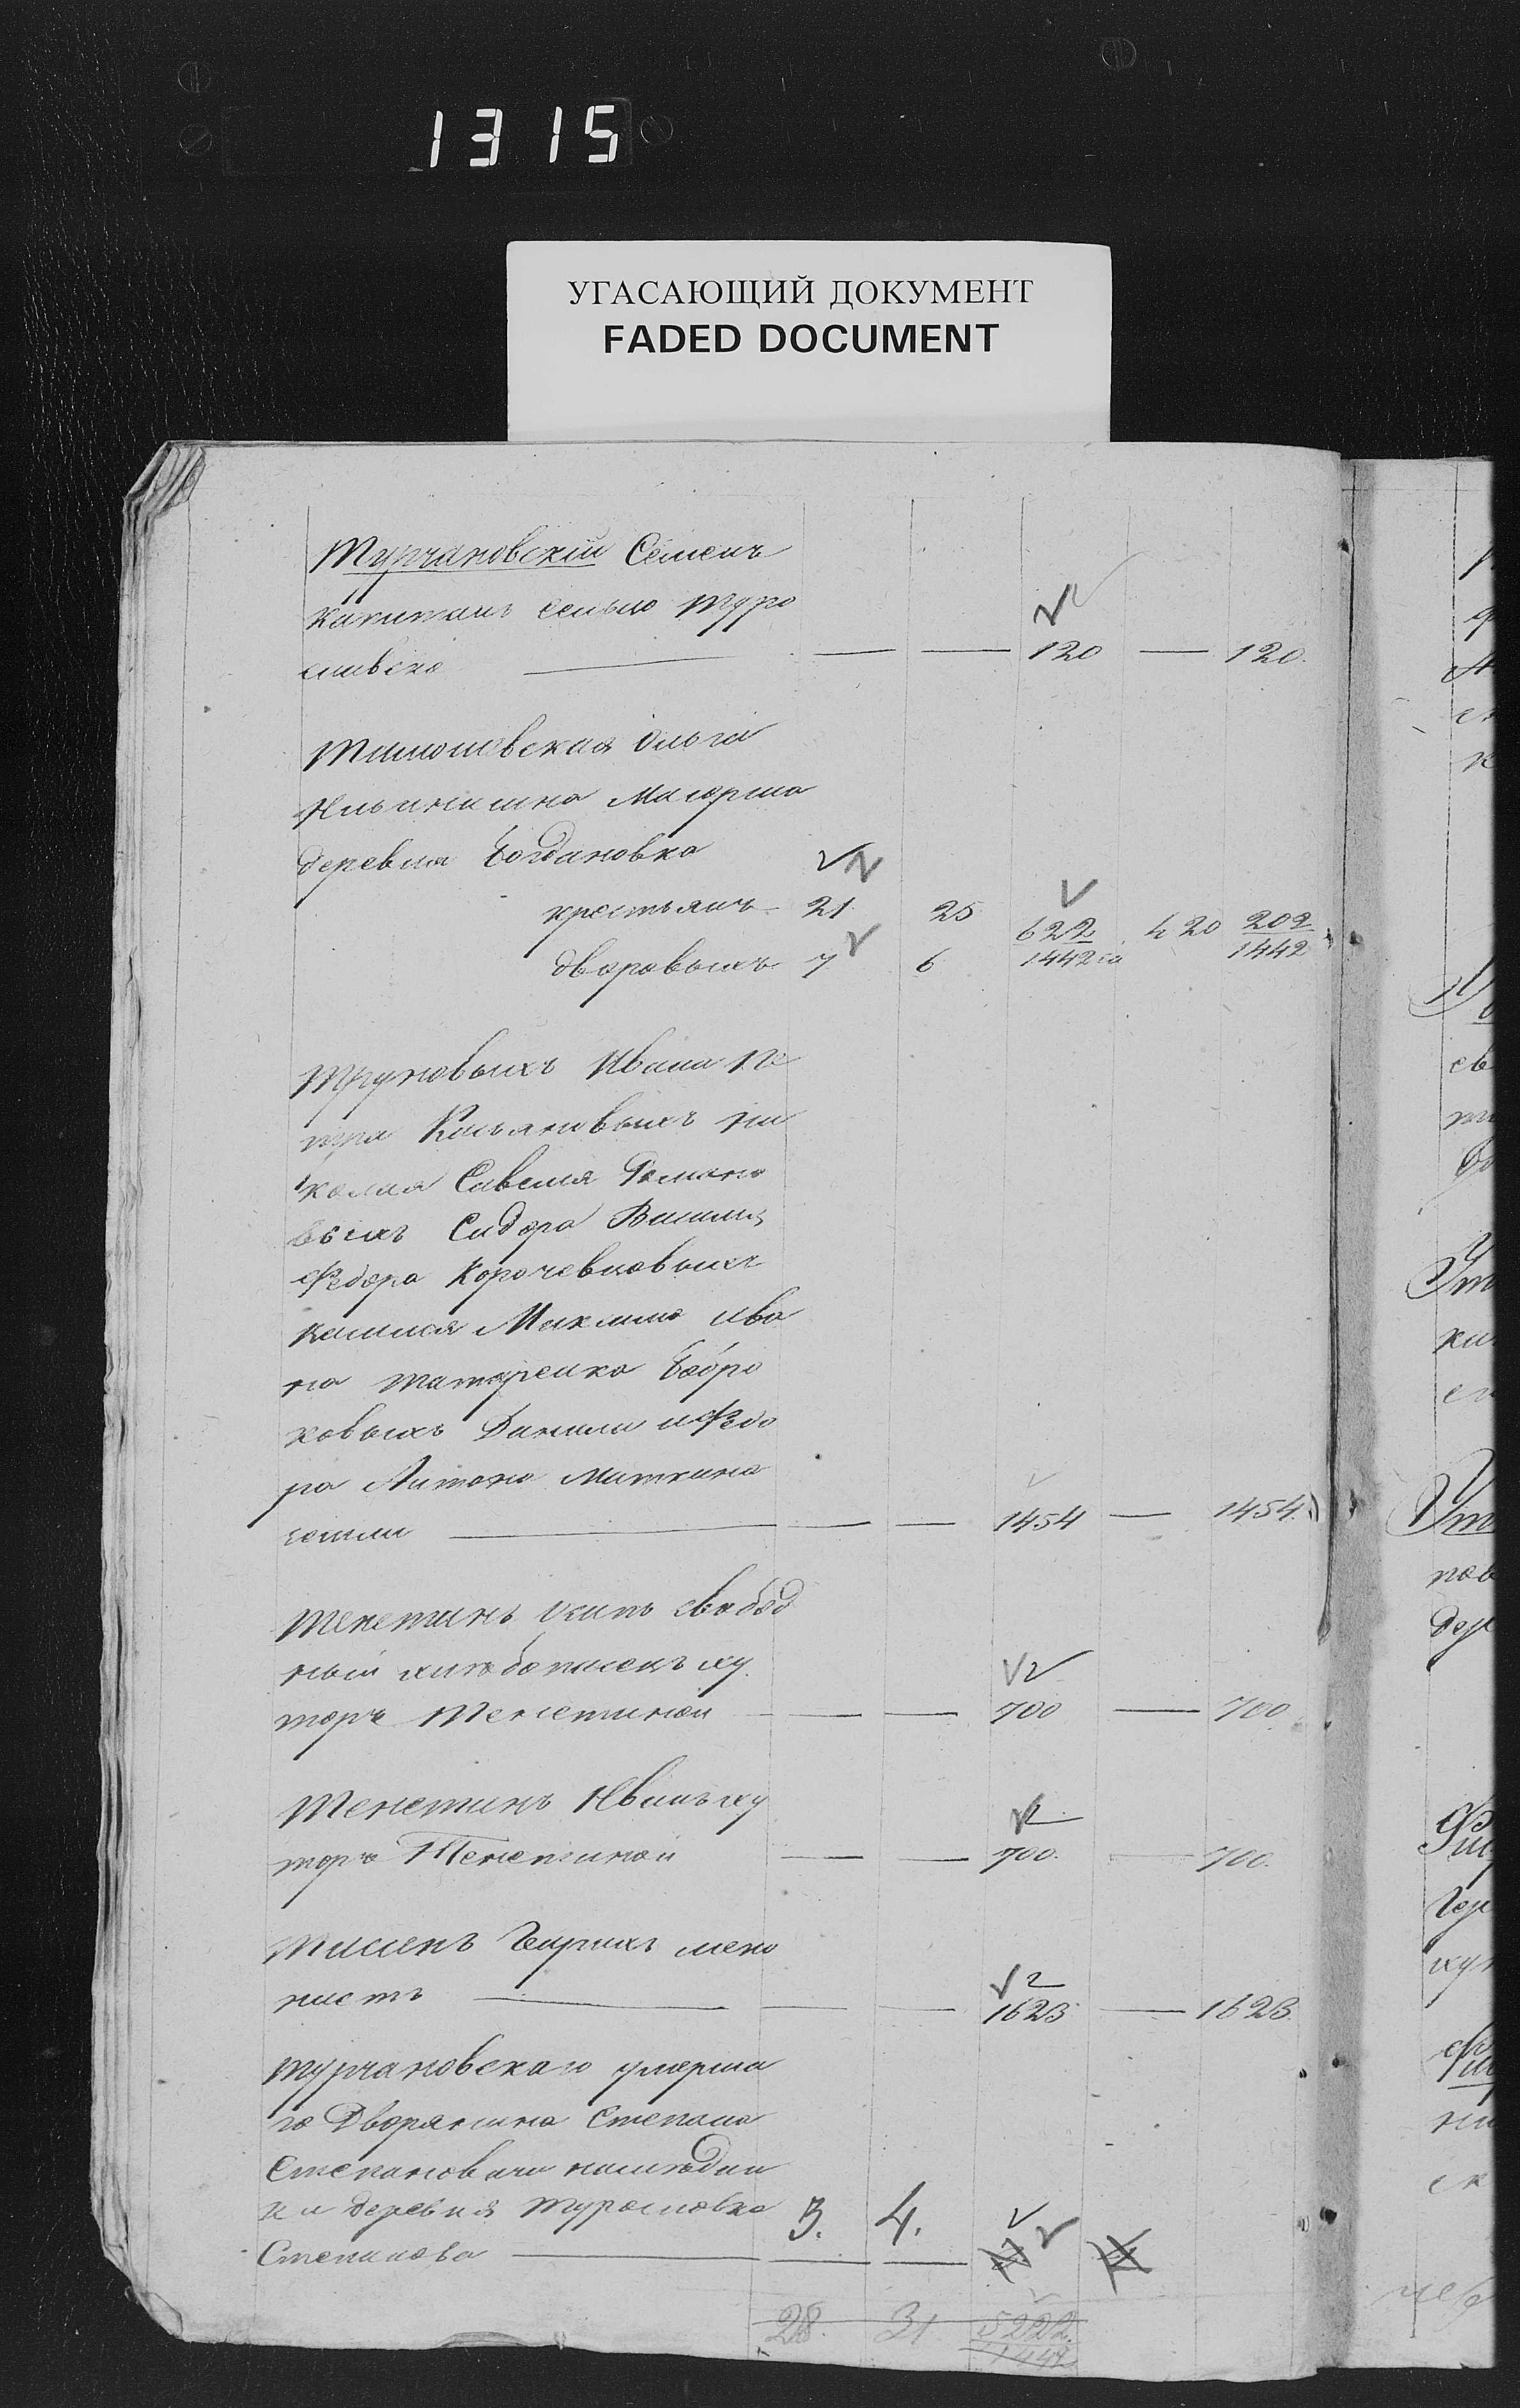 1315
УГАСАЮЩИЙ ДОКУМЕНТ
FADED DOCUMENT
Турчановскій Семенъ
капитанъ сельцо Туро
— — 120 — 120.
Тимошевская Ольга
Ильинишна Маіорша
деревня Богдановка
крестьянъ 21. 25 622 420 202
дворовыхъ 7 6 1442 1442
Труновыхъ Ивана Пе
тра Касьяновыхъ Ни
колая Савелія Романо
выхъ Сидора Василія
Федора Корочевцовыхъ
Максима Ива
на Татаренка Бобро
ковыхъ Данила и Федо
ра Антона Миткина
— — 1454 — 1454.
Тенетинъ Осипъ свобод
ный хлебопашецъ ху
торъ Тенетиной — — 700 — 700
Тенетинъ Иванъ ху
торъ Тенетиной — — 700. — 700.
Тиссенъ Гергихъ мено
нистъ — — 1623 — 1623.
Турчановскаго умерша
го Дворянина Степана
Степановича наследни
ки деревня Туроловка 3. 4.
Степанова — —
28. 31 5222.
1442